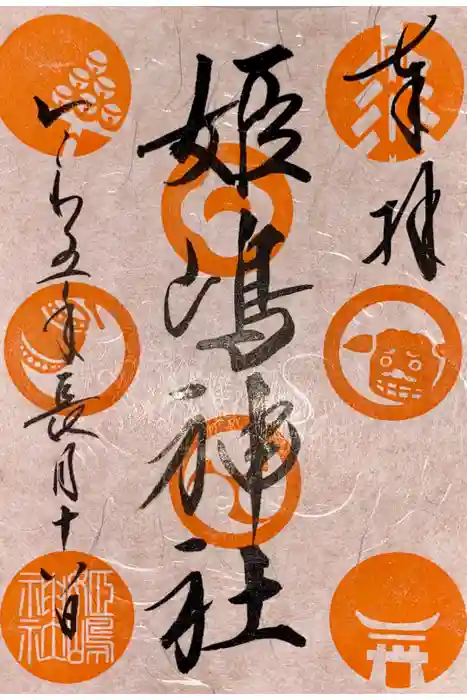 奉拝
姫嶋神社
令和五年長月十八日
姫嶋
神社